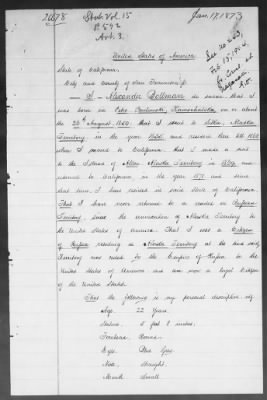 2678
Stat. Vol. 15
P. 542
Art. 3.
Jan. 17, 1873
See No.
Feb. 15, 1904
United States of America
State of California
City and County of San Francisco
I, Alexander Dollman do swear that I
was born in Petropaulovski, Kamschatka, on or about
the 26th August 1850 that I went to Sitka, Alaska
Territory in the year and remained there till 1868
when I passed to California, that I made a visit
to the Islands of Alaska Territory in 1870, and
returned to California in the year 1871 and since
that time I have resided in said State of California.
That I have never returned to a residence in Russian
Territory since the surrender of Alaska Territory to
the United States of America. That I was a Citizen
of Russia residing at Alaska Territory at the time said
Territory was ceded by the Empire of Russia to the
United States of America and am now a legal Citizen
of the United States.
That the following is my personal description, viz:
Age. 22 Years
Stature. 5 feet 8 inches.
Forehead. Round.
Eyes. Blue Grey.
Nose. Straight.
Mouth. Small